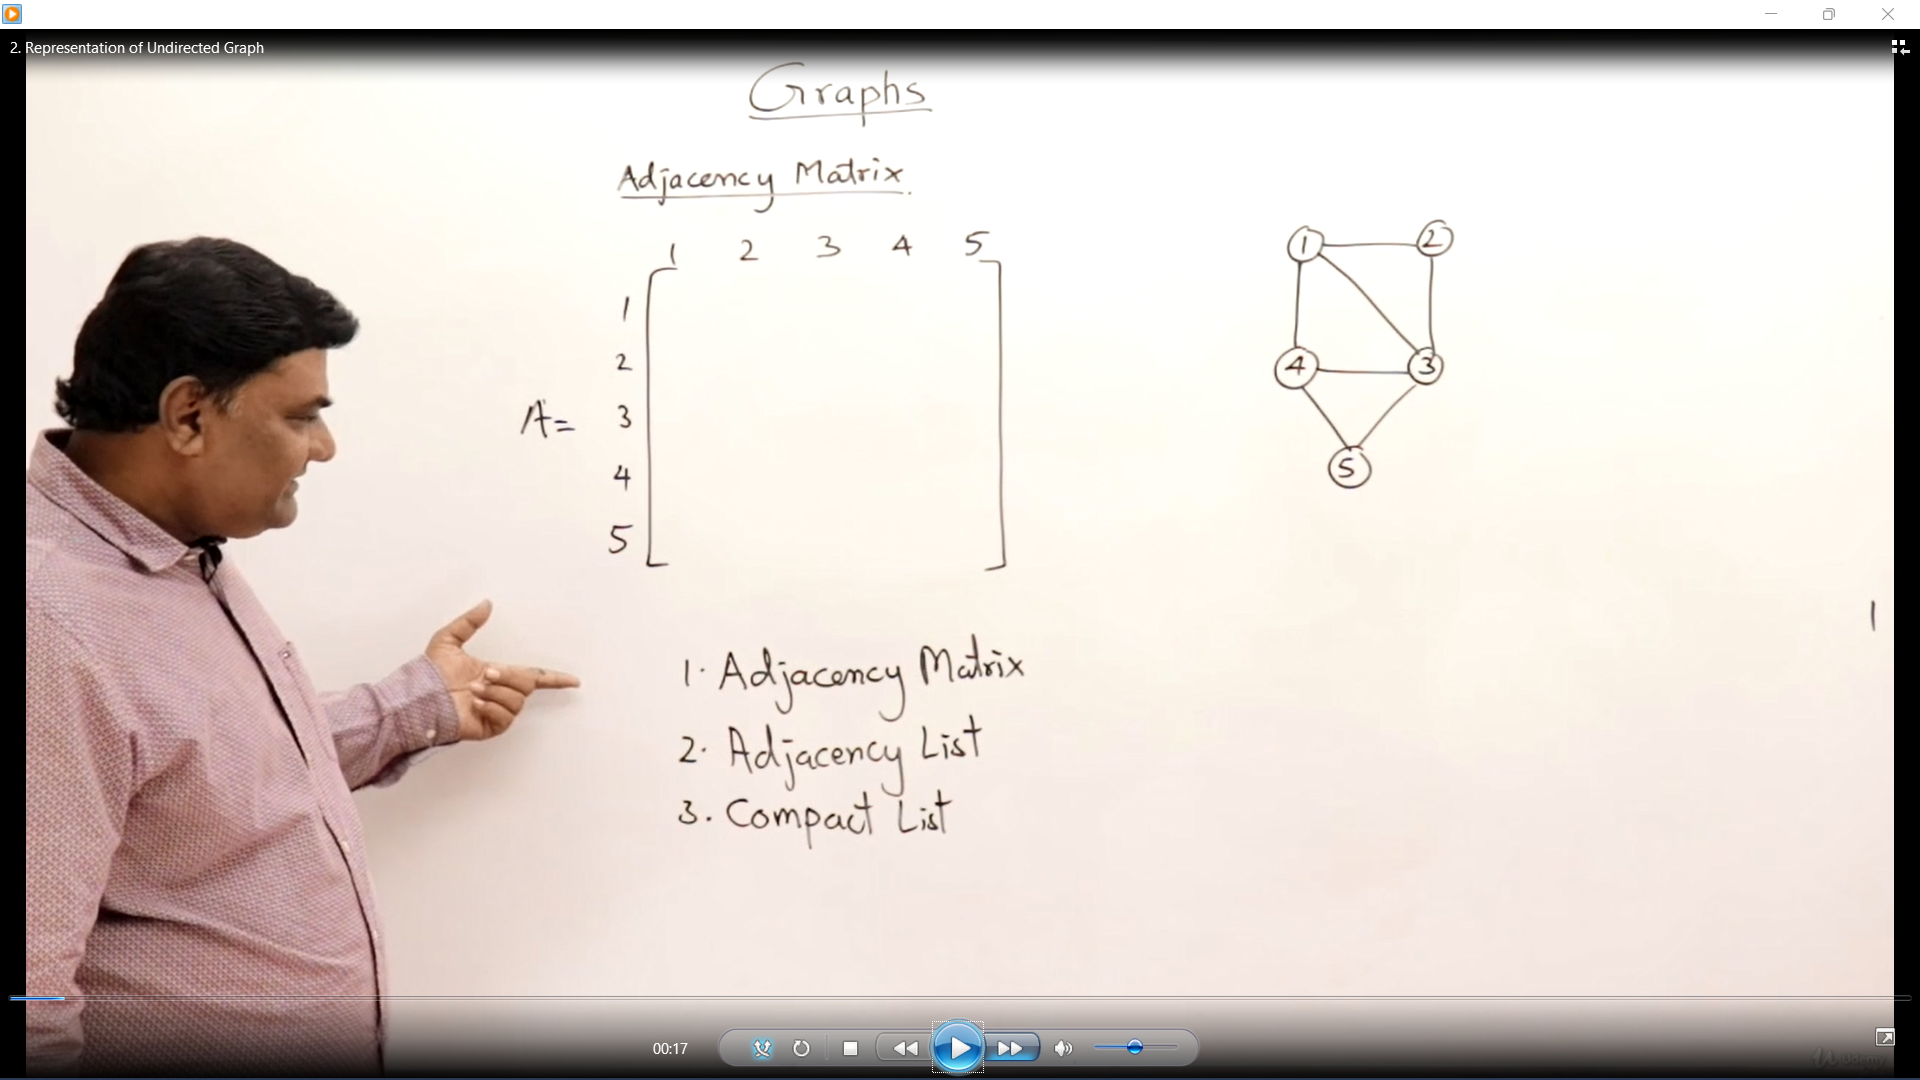 2. Representation of Undirected Graph
Graphs
Adjacency Matrix
1 2 3 4 5
1
2
A= 3
4
5
1 2
4 3
5
1
1. Adjacency Matrix
2. Adjacency List
3. Compact List
00:17
ûdemy